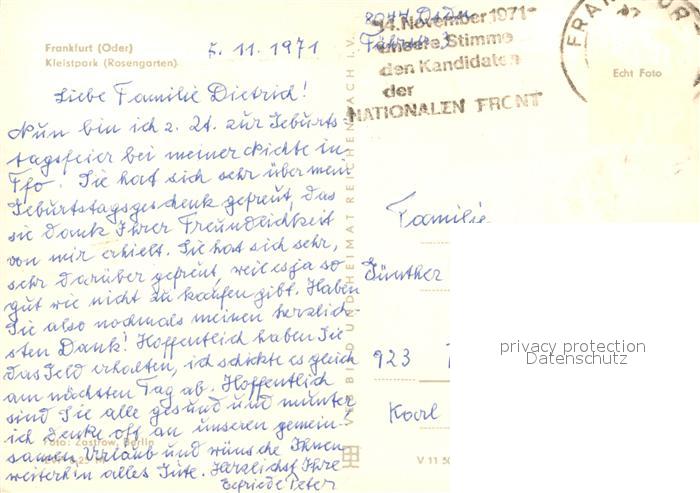 Frankfurt (Oder)
Kleistpark (Rosengarten)
5.11.1971
Liebe Familie Dietrich!
Nun bin ich z. Zt. zur Geburts
tagsfeier bei meiner Nichte in
Ffo. Sie hat sich sehr über mein
Geburtstagsgeschenk gefreut, das
sie dank Ihrer Freundlichkeit
von mir erhielt. Sie hat sich sehr,
sehr darüber gefreut, weil es ja so
gut wie nicht zu kaufen gibt. Haben
Sie also nochmals meinen herzlich
sten Dank! Hoffentlich haben Sie
das Geld erhalten, ich schickte es gleich
am nächsten Tag ab. Hoffentlich
sind Sie alle gesund und munter
ich denke oft an unseren gemein-
samen Urlaub und wünsche Ihnen
weiterhin alles Gute. Herzlichst Ihre
Elfriede Peter
Foto: Zastrow, Berlin
VERLAG BILD UND HEIMAT REICHENBACH I. V.
14. November 1971-
unsere Stimme
den Kandidaten
der
NATIONALEN FRONT
FRANKFURT
Echt Foto
Familie
Günther
923
Karl
V 11 50
privacy protection
Datenschutz